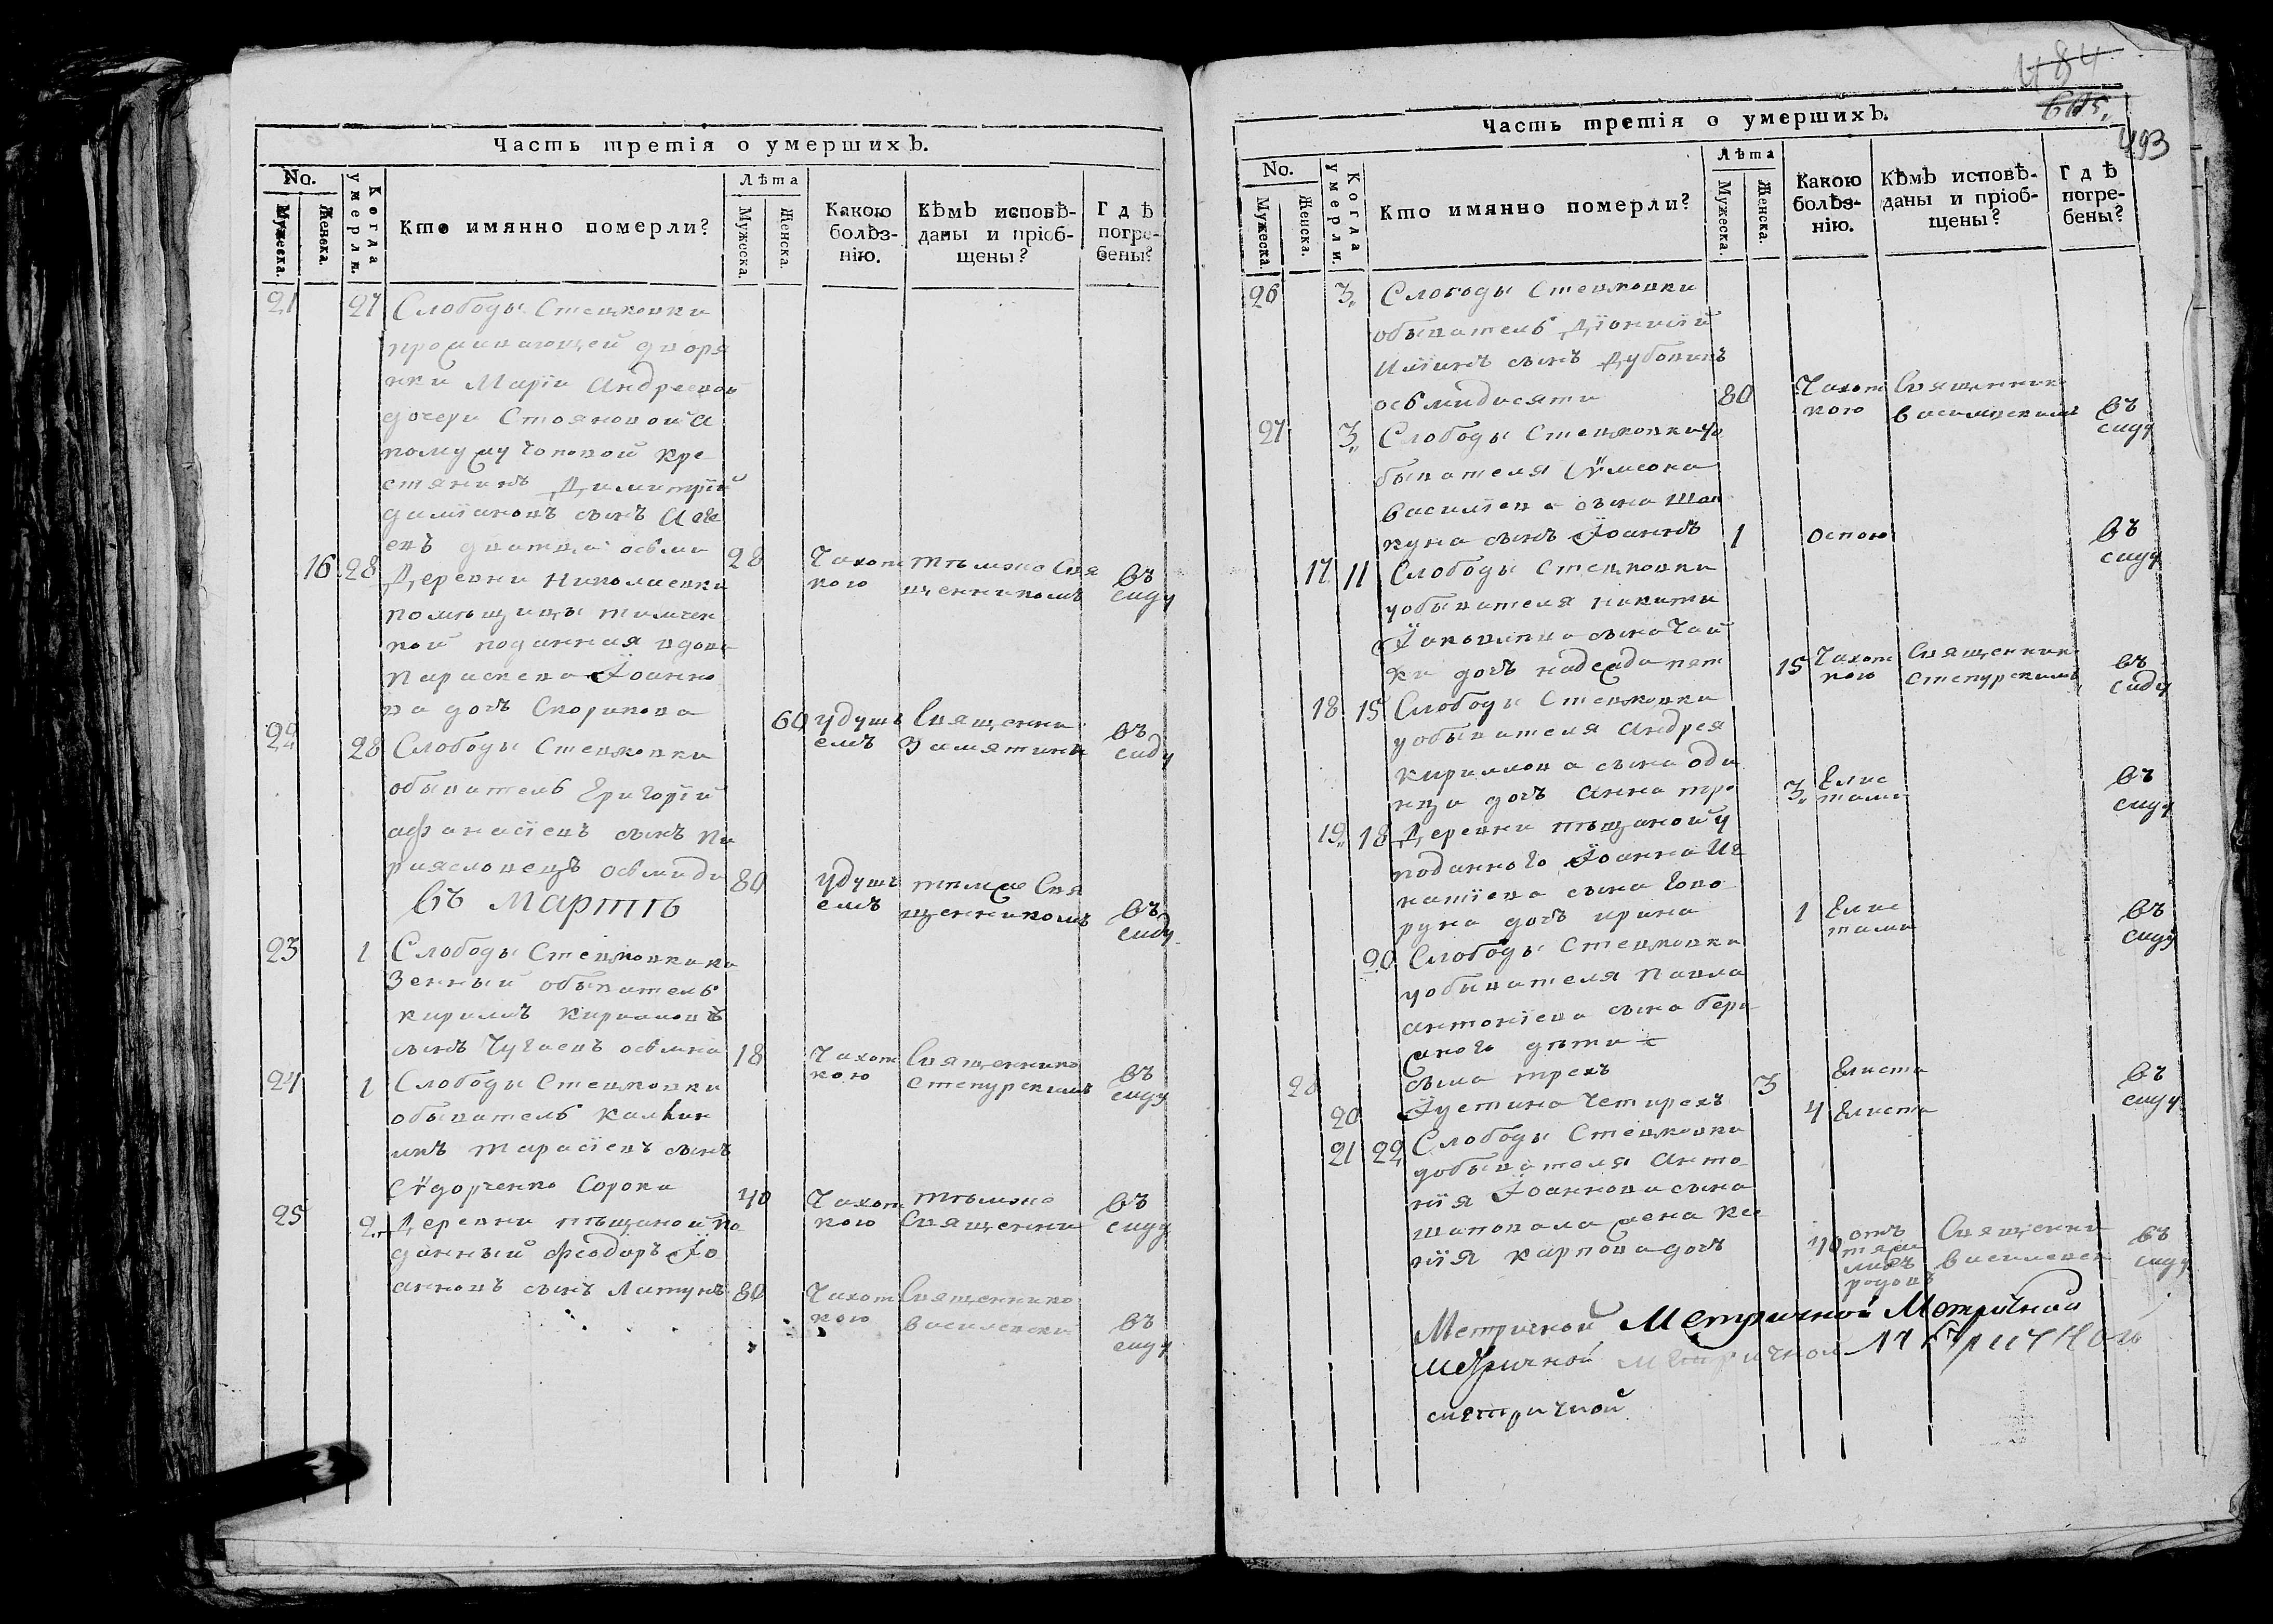 Часть третія о умершихъ.
No. Мужеска. Женска. Когда умерли. Кто имянно померли? Лѣта Мужеска. Женска. Какою болѣзнію. Кѣмъ исповѣданы и пріобщены? Гдѣ погребены?
21 27 Слободы Стецковки
проживающей дворя
нки Маріи Андреевой
дочери Стояновой а
помужу Поповой кре
стянинъ Димитрій
даміановъ сынъ
дватцат осьми 28 Чахот тѣмже Свя въ
кою щенникомъ саду
16 28 Деревни Николаевки
помѣщицы
кой поданная вдова
Параскева Іоанно
ва дочь Скорикова 60 удуш Священни въ
емъ Замятины саду
22 28 Слободы Стецковки
обыватель Григорій
афанасіевъ сынъ пи
риясловецъ осьмиде 80 удуш темже Свя
емъ щенникомъ въ
саду
въ Мартѣ
23 1 Слободы Стецковки ка
зенный обыватель
кирилъ Кириловъ
сынъ Чугаевъ осьмна 18 Чахот Священнико въ
кою Степурскимъ саду
24 1 Слободы Стецковки
обыватель Калин
икъ Тарасіевъ сынъ
Сѵдорченко Сорока 40 Чахот тѣмже въ
кою Священни саду
25 2 Деревни пѣщаной по
данный феодоръ Іо
анновъ сынъ Латунъ 80 Чахот Священнико
кою василевски въ
саду
484
493
Часть третія о умершихъ.
No. Мужеска. Женска. Когда умерли. Кто имянно померли? Лѣта Мужеска. Женска. Какою болѣзнію. Кѣмъ исповѣданы и пріобщены? Гдѣ погребены?
26 3 Слободы Стецковки
обыватель Діонисій
Иліинъ сынъ Дубовикъ
осьмидисяти 80 Чахот Священник
кою василевскимъ въ
саду
27 3 Слободы Стецковки уо
бывателя Сѵмеона
Василіева сына Шап
куна сынъ Іоаннъ 1 оспою въ
саду
17 11 Слободы Стецковки
уобывателя никити
Іаковлева сына Чай
ки дочь пят 15 Чахот Священник въ
кою Степурскимъ саду
18 15 Слободы Стецковки
уобывателя Андрея
Кирилова сына оди
нца дочь Анна тро 3 Глис въ
тами саду
19 18 Деревни пѣщаной у
поданного Іоанна Иг
натіева сына Гово
руна дочь ирина 1 Глис въ
тами саду
20 Слободы Стецковки
уобывателя Павла
антоніева сына бере
ского дѣти
28 трехъ 3 Глиста въ
саду
20 Іустина Четирехъ 4 Глиста
21 22 Слободы Стецковки
уобывателя Анто
нія Іоаннова сына
шаповала жена Ксе
нія Карпова дочь 40 отъ Священни въ
тяж василевск саду
лихъ
родовъ
Метричной Метричной Метричной
метричной метричной Метричной
метричной